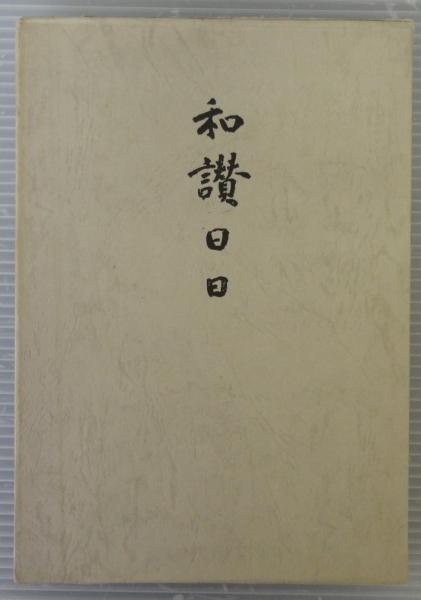 和讃日日